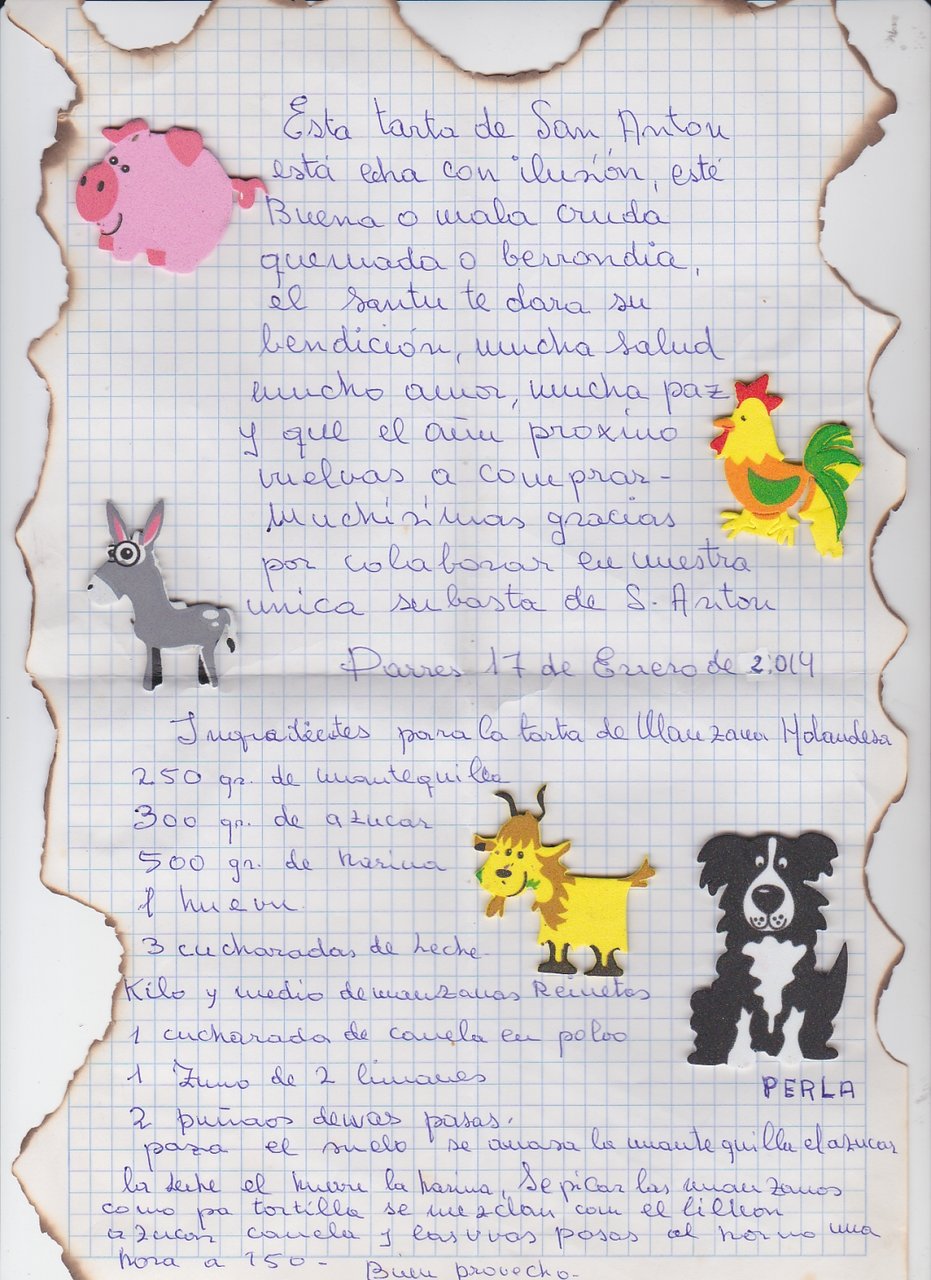 Esta tarta de San Anton
está echa con ilusión, esté
Buena o mala cruda
quemada o berrondia,
el santu te dara su
bendición, mucha salud
mucho amor, mucha paz
y que el añu proximo
vuelvas a comprar-
Muchisimas gracias
por colaborar en nuestra
unica subasta de S. Anton
Parres 17 de Enero de 2.014
Ingredientes para la tarta de Manzana Holandesa
250 gr. de mantequilla
300 gr. de azucar
500 gr. de harina
1 huevu
3 cucharadas de leche-
Kilo y medio de manzanas Reinetas
1 cucharada de canela en polvo
1 Zumo de 2 limones
2 puñaos de uvas pasas.
para el suelo se amasa la mantequilla el azucar
la leche el huevu la harina, Se pican las manzanas
como pa tortilla se mezclan con el lillion
azucar canela y las uvas pasas al horno una
hora a 150- Buen provecho-
PERLA